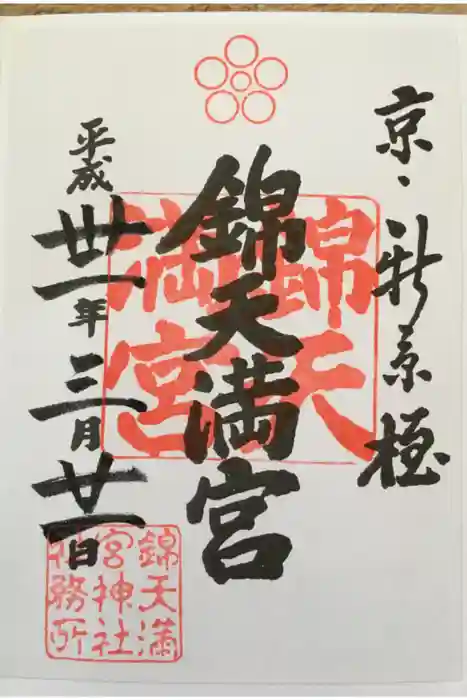 京・新京極
錦天満宮
錦天
満宮
平成卅一年三月廿一日
錦天満
宮神社
神務所